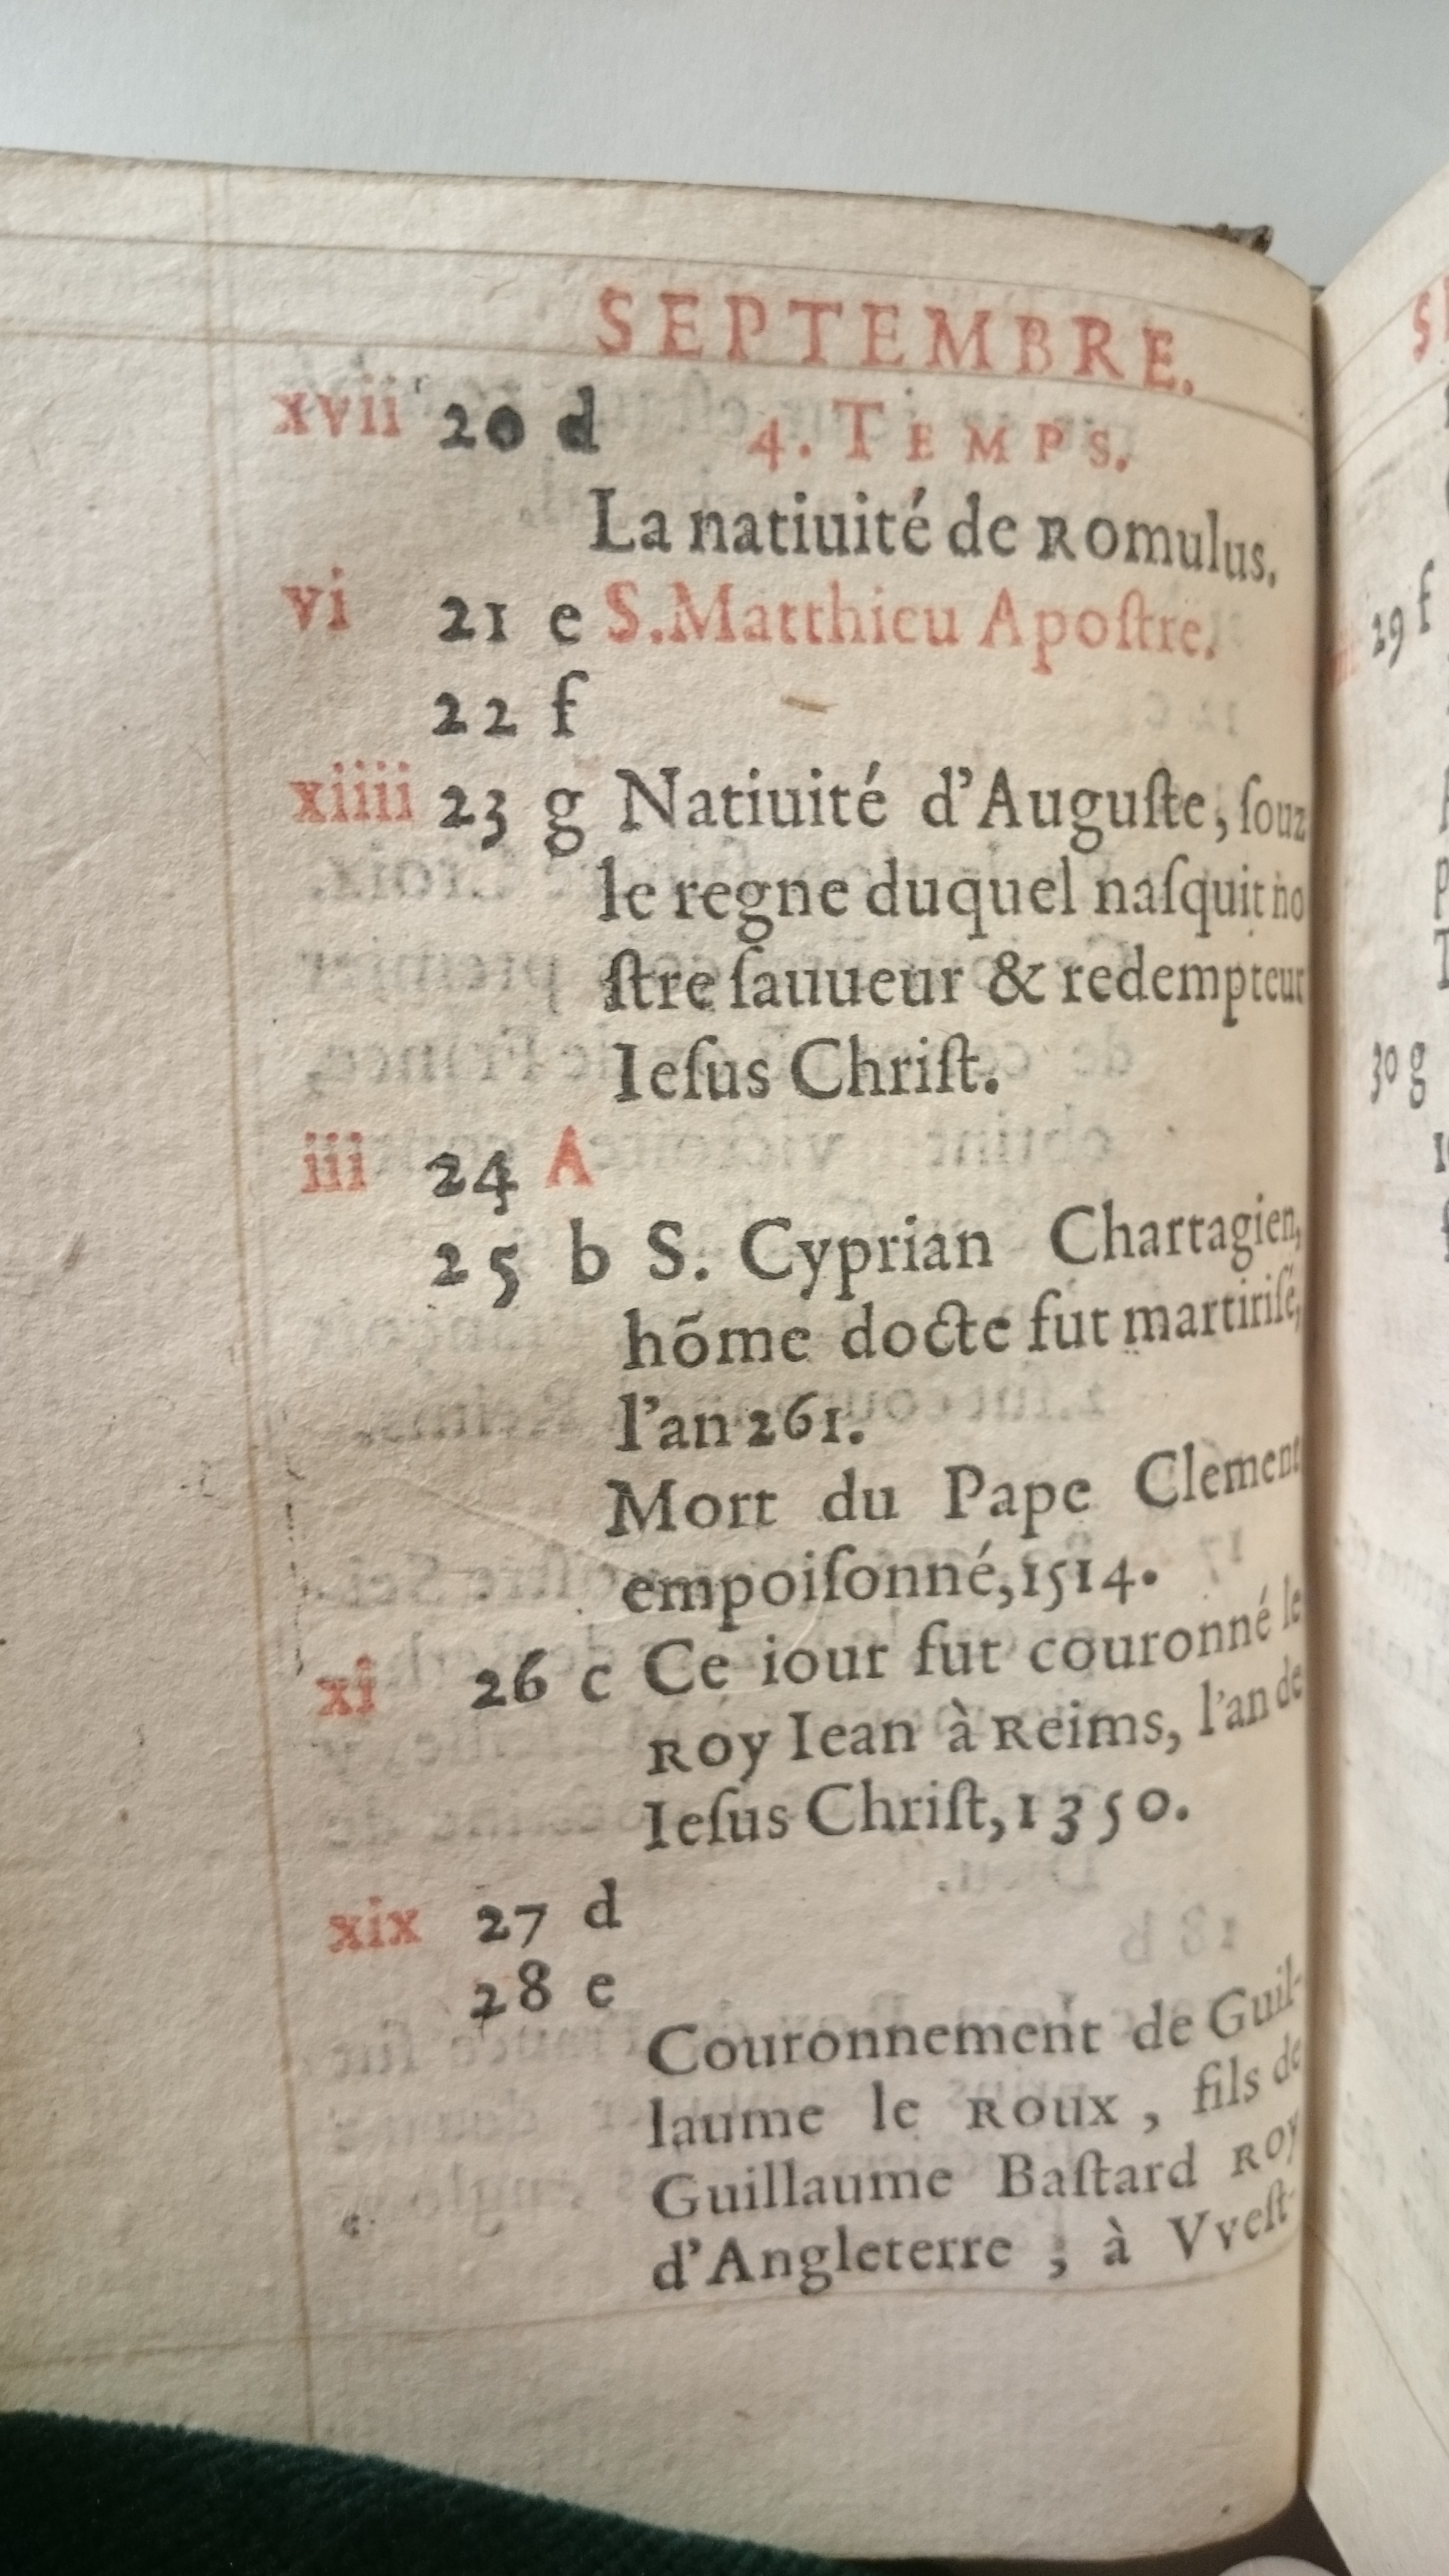 SEPTEMBRE.
xvii 20 d 4. TEMPS.
La natiuité de Romulus.
vi 21 e S. Matthieu Apoſtre.
22 f
xiiii 23 g Natiuité d'Auguſte, ſouz
le regne duquel naſquit no
ſtre ſauueur & redempteur
Ieſus Chriſt.
iii 24 A
25 b S. Cyprian Chartagien,
hõme docte fut martiriſé,
l'an 261.
Mort du Pape Clement
empoiſonné, 1514.
xi 26 c Ce iour fut couronné le
Roy Iean à Reims, l'an de
Ieſus Chriſt, 1350.
xix 27 d
28 e
Couronnement de Guil-
laume le Roux, fils de
Guillaume Baſtard Roy
d'Angleterre, à Vveſt-
29 f
30 g